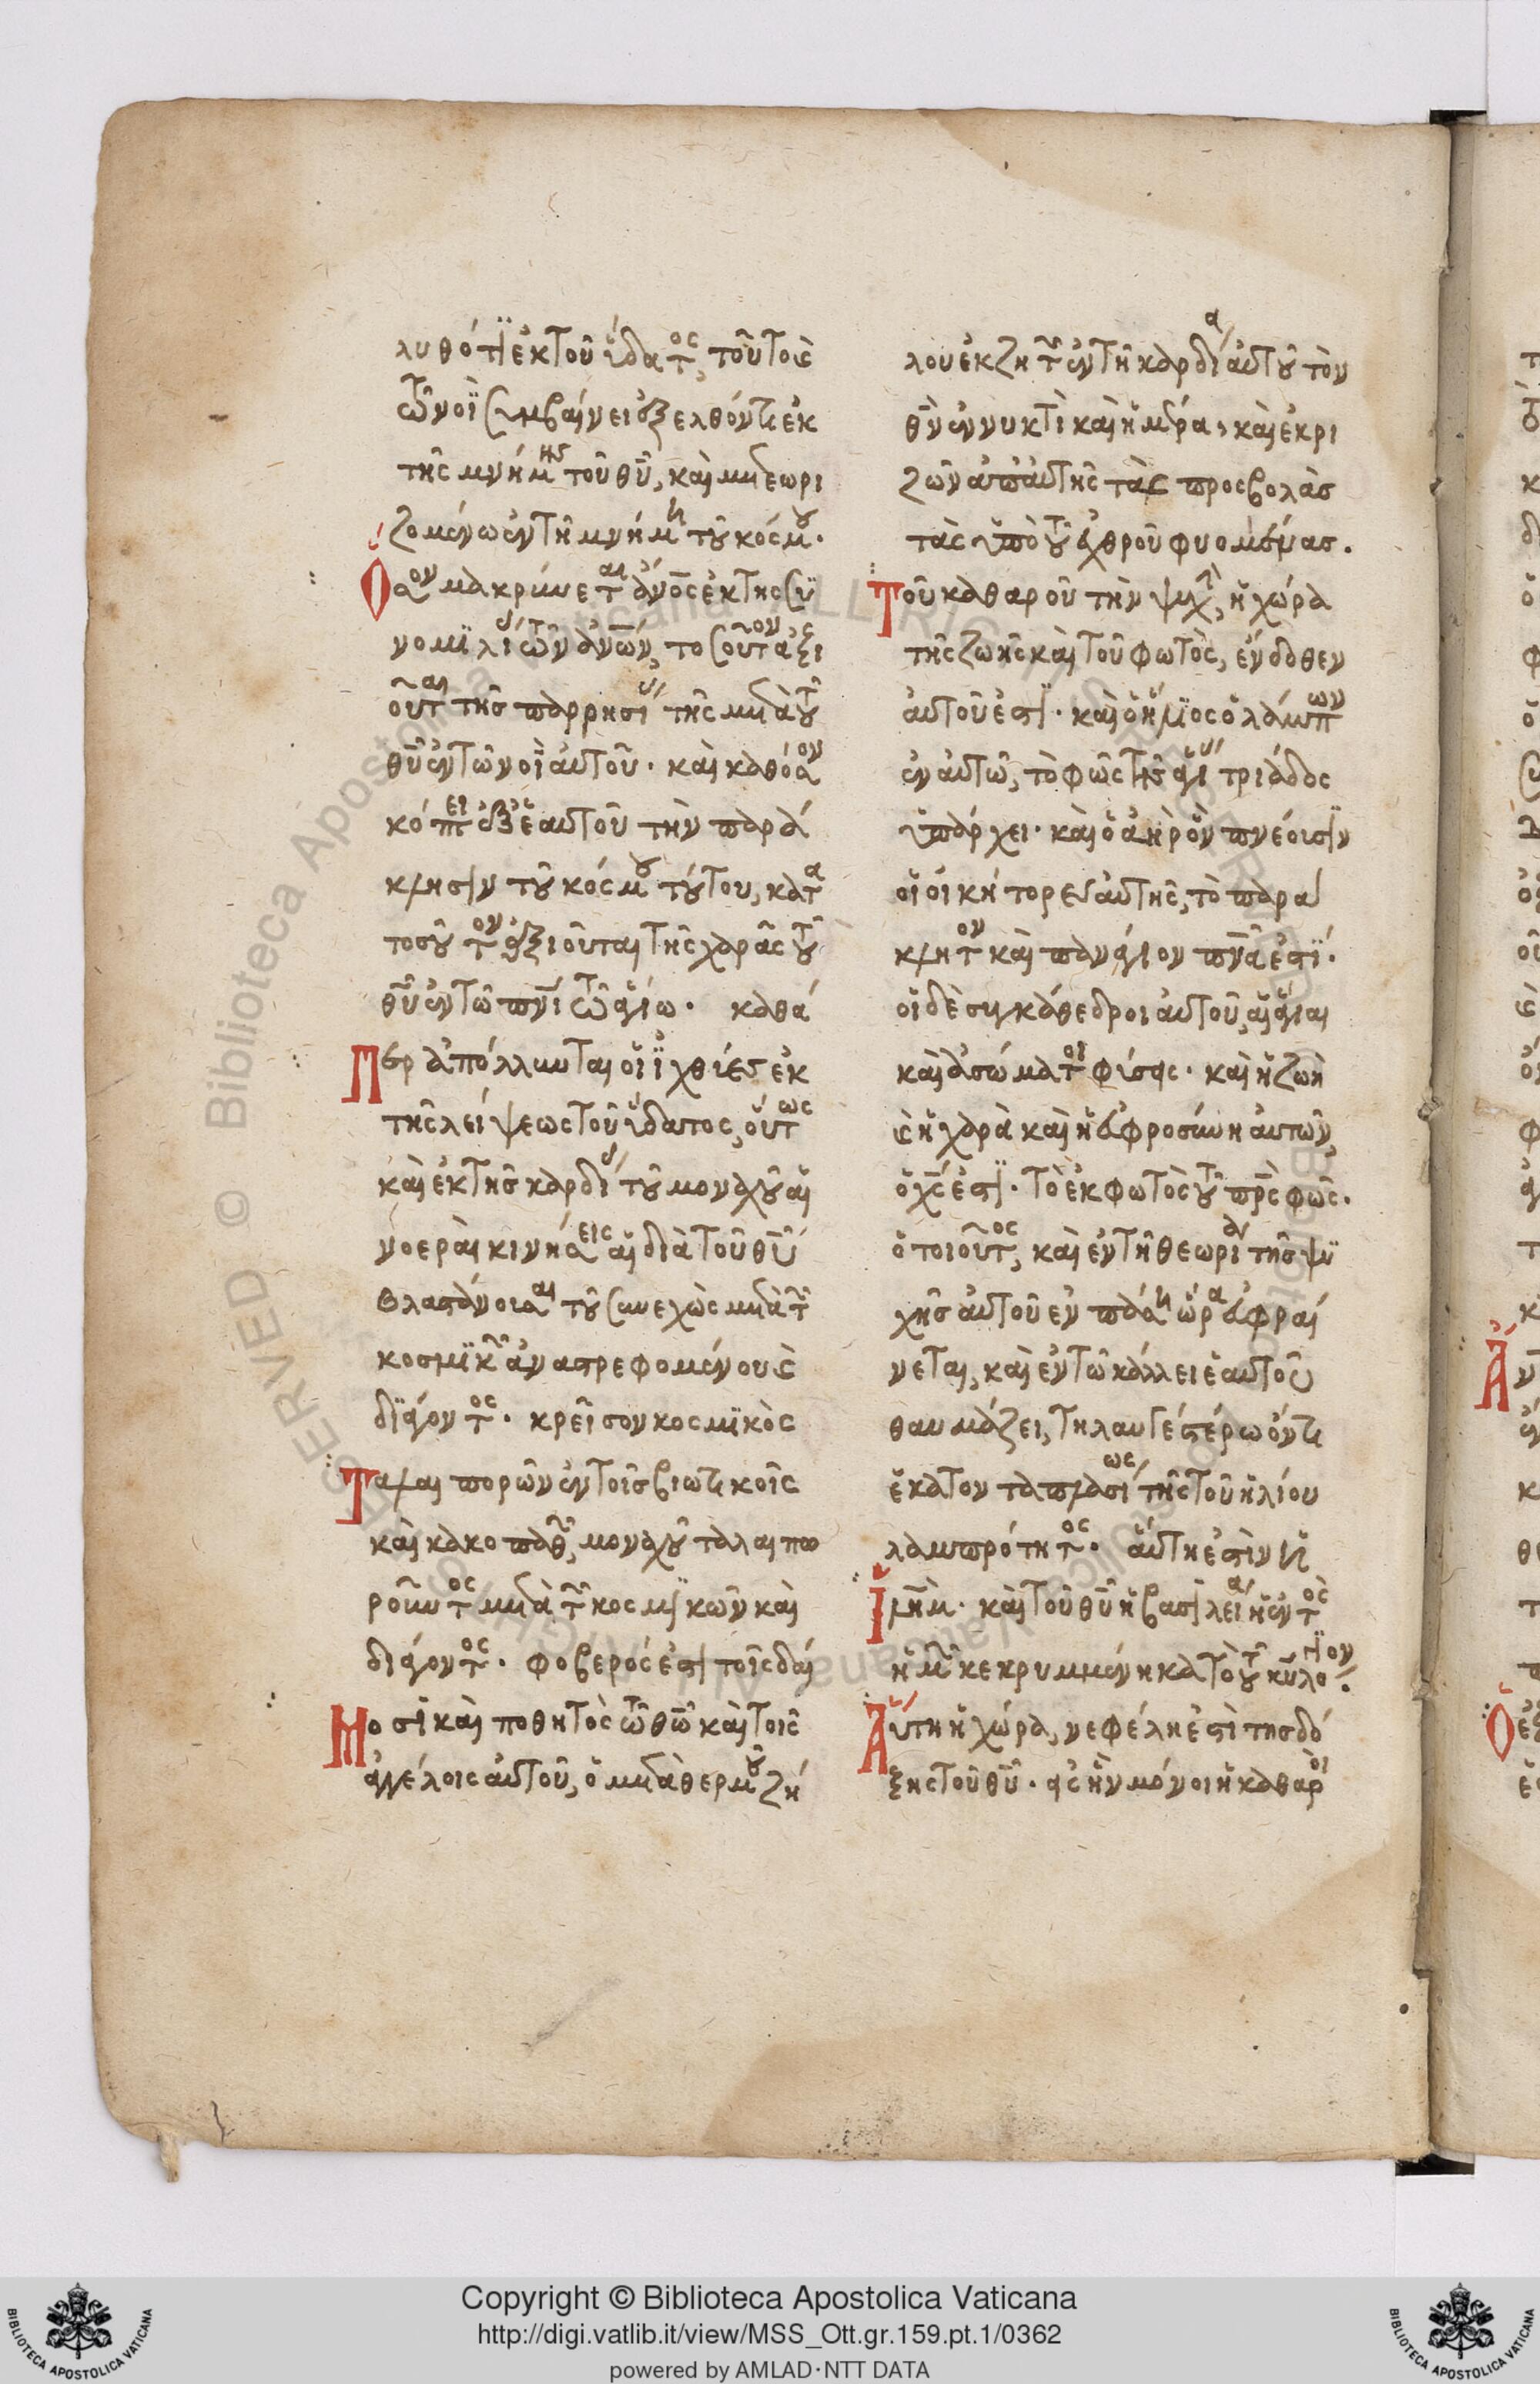 λυθότι ἐκ τοῦ ὕδατος, τοῦτο καὶ
τῶ νοῒ συμβαίνει ἐξελθόντι ἐκ
τῆς μνήμης τοῦ θῦ, καὶ μετεωρι
ζομένω ἐν τῆ μνήμη τοῦ κόσμου.
Ὅσον μακρύνεται ἄνος ἐκ τῆς συ
νομιλίας τῶν ἀνων, τοσοῦτον ἀξι
οῦται τῆς παρρησίας τῆς μετὰ τοῦ
θῦ ἐν τῶ νοῒ αὐτοῦ. καὶ καθόσον
κόπτει ἐξ ἑαυτοῦ τὴν παρά
κλησιν τοῦ κόσμου τούτου, κατὰ
τοσοῦτον ἀξιοῦται τῆς χαρᾶς τοῦ
θῦ ἐν τῶ πνι τῶ ἁγίω. καθά
Περ ἀπόλλυνται οἱ ἰχθύες ἐκ
τῆς λείψεως τοῦ ὕδατος, οὕτως
καὶ ἐκ τῆς καρδίας τοῦ μοναχοῦ αἱ
νοεραὶ κινήσεις αἱ διὰ τοῦ θῦ
βλαστάνουσαι τοῦ συνεχῶς μετὰ τῶν
κοσμικῶν ἀναστρεφομένου καὶ
διάγοντος. κρεῖσσον κοσμικὸς
Ταλαιπορῶν ἐν τοῖς βιωτικοῖς
καὶ κακοπαθῶν, μοναχοῦ ταλαιπω
ροῦντος μετὰ τῶν κοσμικῶν καὶ
διάγοντος. φοβερός ἐστι τοῖς δαί
Μοσι καὶ ποθητὸς τῶ θῶ καὶ τοῖς
ἀγγέλοις αὐτοῦ, ὁ μετὰ θερμοῦ ζή
λου ἐκζητῶν ἐν τῆ καρδία αὐτοῦ τὸν
θν ἐν νυκτὶ καὶ ἡμέρα, καὶ ἐκρι
ζῶν ἀπ' αὐτῆς τὰς προσβολὰς
τὰς ὑπὸ τοῦ ἐχθροῦ φυομένας.
Τοῦ καθαροῦ τὴν ψυχὴν, ἡ χώρα
τῆς ζωῆς καὶ τοῦ φωτὸς, ἔνδοθεν
αὐτοῦ ἐστι. καὶ ὁ ἥλιος ὁ λάμπων
ἐν αὐτῶ, τὸ φῶς τῆς ἁγίας τριάδος
ὑπάρχει. καὶ ὁ ἀὴρ ὃν πνέουσιν
οἱ οἰκήτορες αὐτῆς, τὸ παρά
κλητον καὶ πανάγιον πνα ἐστί.
οἱ δὲ συγκάθεδροι αὐτοῦ, αἱ ἅγιαι
καὶ ἀσώματοι φύσεις. καὶ ἡ ζωὴ
καὶ ἡ χαρὰ καὶ ἡ εὐφροσύνη αὐτῶν,
ὁ χς ἐστι. τὸ ἐκ φωτὸς τοῦ πρς φῶς.
ὁ τοιοῦτος, καὶ ἐν τῆ θεωρία τῆς ψυ
χῆς αὐτοῦ ἐν πάση ὥρα εὐφραί
νεται, καὶ ἐν τῶ κάλλει ἑαυτοῦ
θαυμάζει, τηλαυγεστέρω ὄντι
ἑκατονταπλασίως τῆς τοῦ ἡλίου
λαμπρότητος. αὕτη ἐστὶν ἡ
Ἱλημ. καὶ τοῦ θῦ ἡ βασιλεία ἡ ἐντὸς
ἡμῶν κεκρυμμένη κατὰ τὸ τοῦ κυ λόγιον.
Αὕτη ἡ χώρα, νεφέλη ἐστὶ τῆς δό
ξης τοῦ θῦ. εἰς ἣν μόνοι ἡ καθαροὶ
Copyright © Biblioteca Apostolica Vaticana
http://digi.vatlib.it/view/MSS_Ott.gr.159.pt.1/0362
powered by AMLAD·NTT DATA